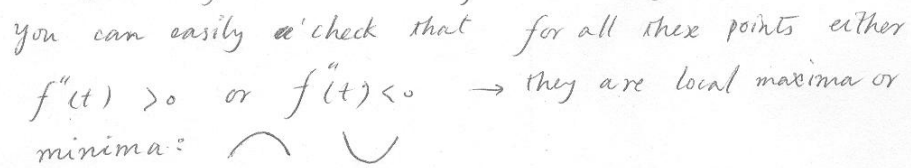 you can easily check that for all these points either
f"(t) >0 or f"(t) <0 → they are local maxima or
minima: